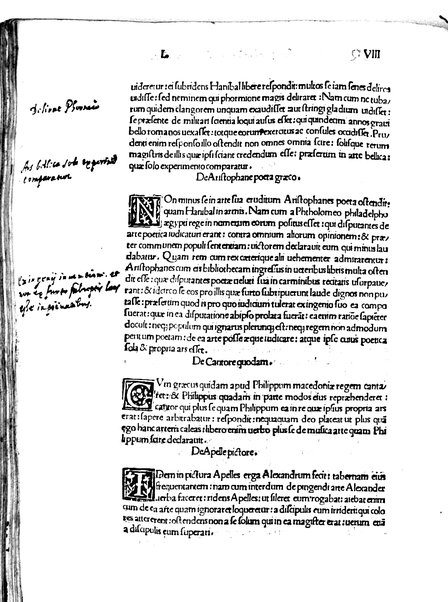 L. VIII
uideretur: ei subridens Hanibal libere respondit: multos se iam senes deliros
uidisse: sed neminem qui phormione magis deliraret: Nam cum ne tuba/
rum quidem clangorem unquam exaudisset aut stringi gladium uidisset:
se præsente de militari scientia loqui ausus esset: qui quindecim annos graui
bello romanos uexasset: totque eorum exercitus ac consules occidisset. Pru/
denti enim responso illo ostendit non omnes omnia scire: solisque rerum
magistris de illis quæ ipsi sciant credendum esse: præsertim in arte bellica:
quæ solo experimento comparatur.
De Aristophane poeta græco.
NOn minus se in arte sua eruditum Aristophanes poeta ostendit:
quam Hanibal in armis. Nam cum a Ptholomeo philadelpho
ægypti rege in numerum eorum positus esset: qui disputantes de
arte poetica iudicarent erant: contra omnium aliorum opinionem: & præ/
ter communem populi sententiam: uictorem declarauit eum qui minus lau
dabatur. Quam rem cum rex cæterique ali uehementer admirarentur:
Aristophanes cum eis bibliothecam ingressus in ueteribus libris multa osten
dit esse: quæ disputantes poetæ deluci sua in carminibus recitatis usurpaue/
rant: & ideireo se eos pro illis quæ furto subripuerunt laude dignos non pu/
tasse: præsertim quod is pro quo iudicium tulerat exingenio suo ea compo
suerat: quæ in ea disputatione ab ipso prolata fuerāt: eā enim ratiōe sapiēter
docuit: neque populum qui ignarus plerunque est: neque regem non admodum
peritum poetam: de ea arte posse æque iudicare: atque ipse cuius poetica
sola & propria ars esset.
De Cantore quodam.
CVm græcus quidam apud Philippum macedoniæ regem canta/
ret: & Philippus quadam in parte modos eius reprehenderet:
cantor qui plus se quam Philippum ea in re quæ ipsius propria ars
erat: sapere arbitrabatur: respondit: nequaquam deo placeat ut plus quā
ego hanc artem caleas: libero enim uerbo plus se de musica arte quam Phi
lippum scire declarauit.
De Apelle pictore.
IDem in pictura Apelles erga Alexandrum fecit: tabernam eius
frequentantem: nam cum interdum de pingendi arte Alexander
uerba faceret: ridens Apelles; ut sileret eum rogabat: aiebat enim
cum de ea arte quam ignoraret loqueretur: a discipulis eum irrideri qui colo
res attererent: ostendens non a se solum qui in ea magister erat: uerum etiā
a discipulis eum superari.
Ars bellica solo experimento
comparatur